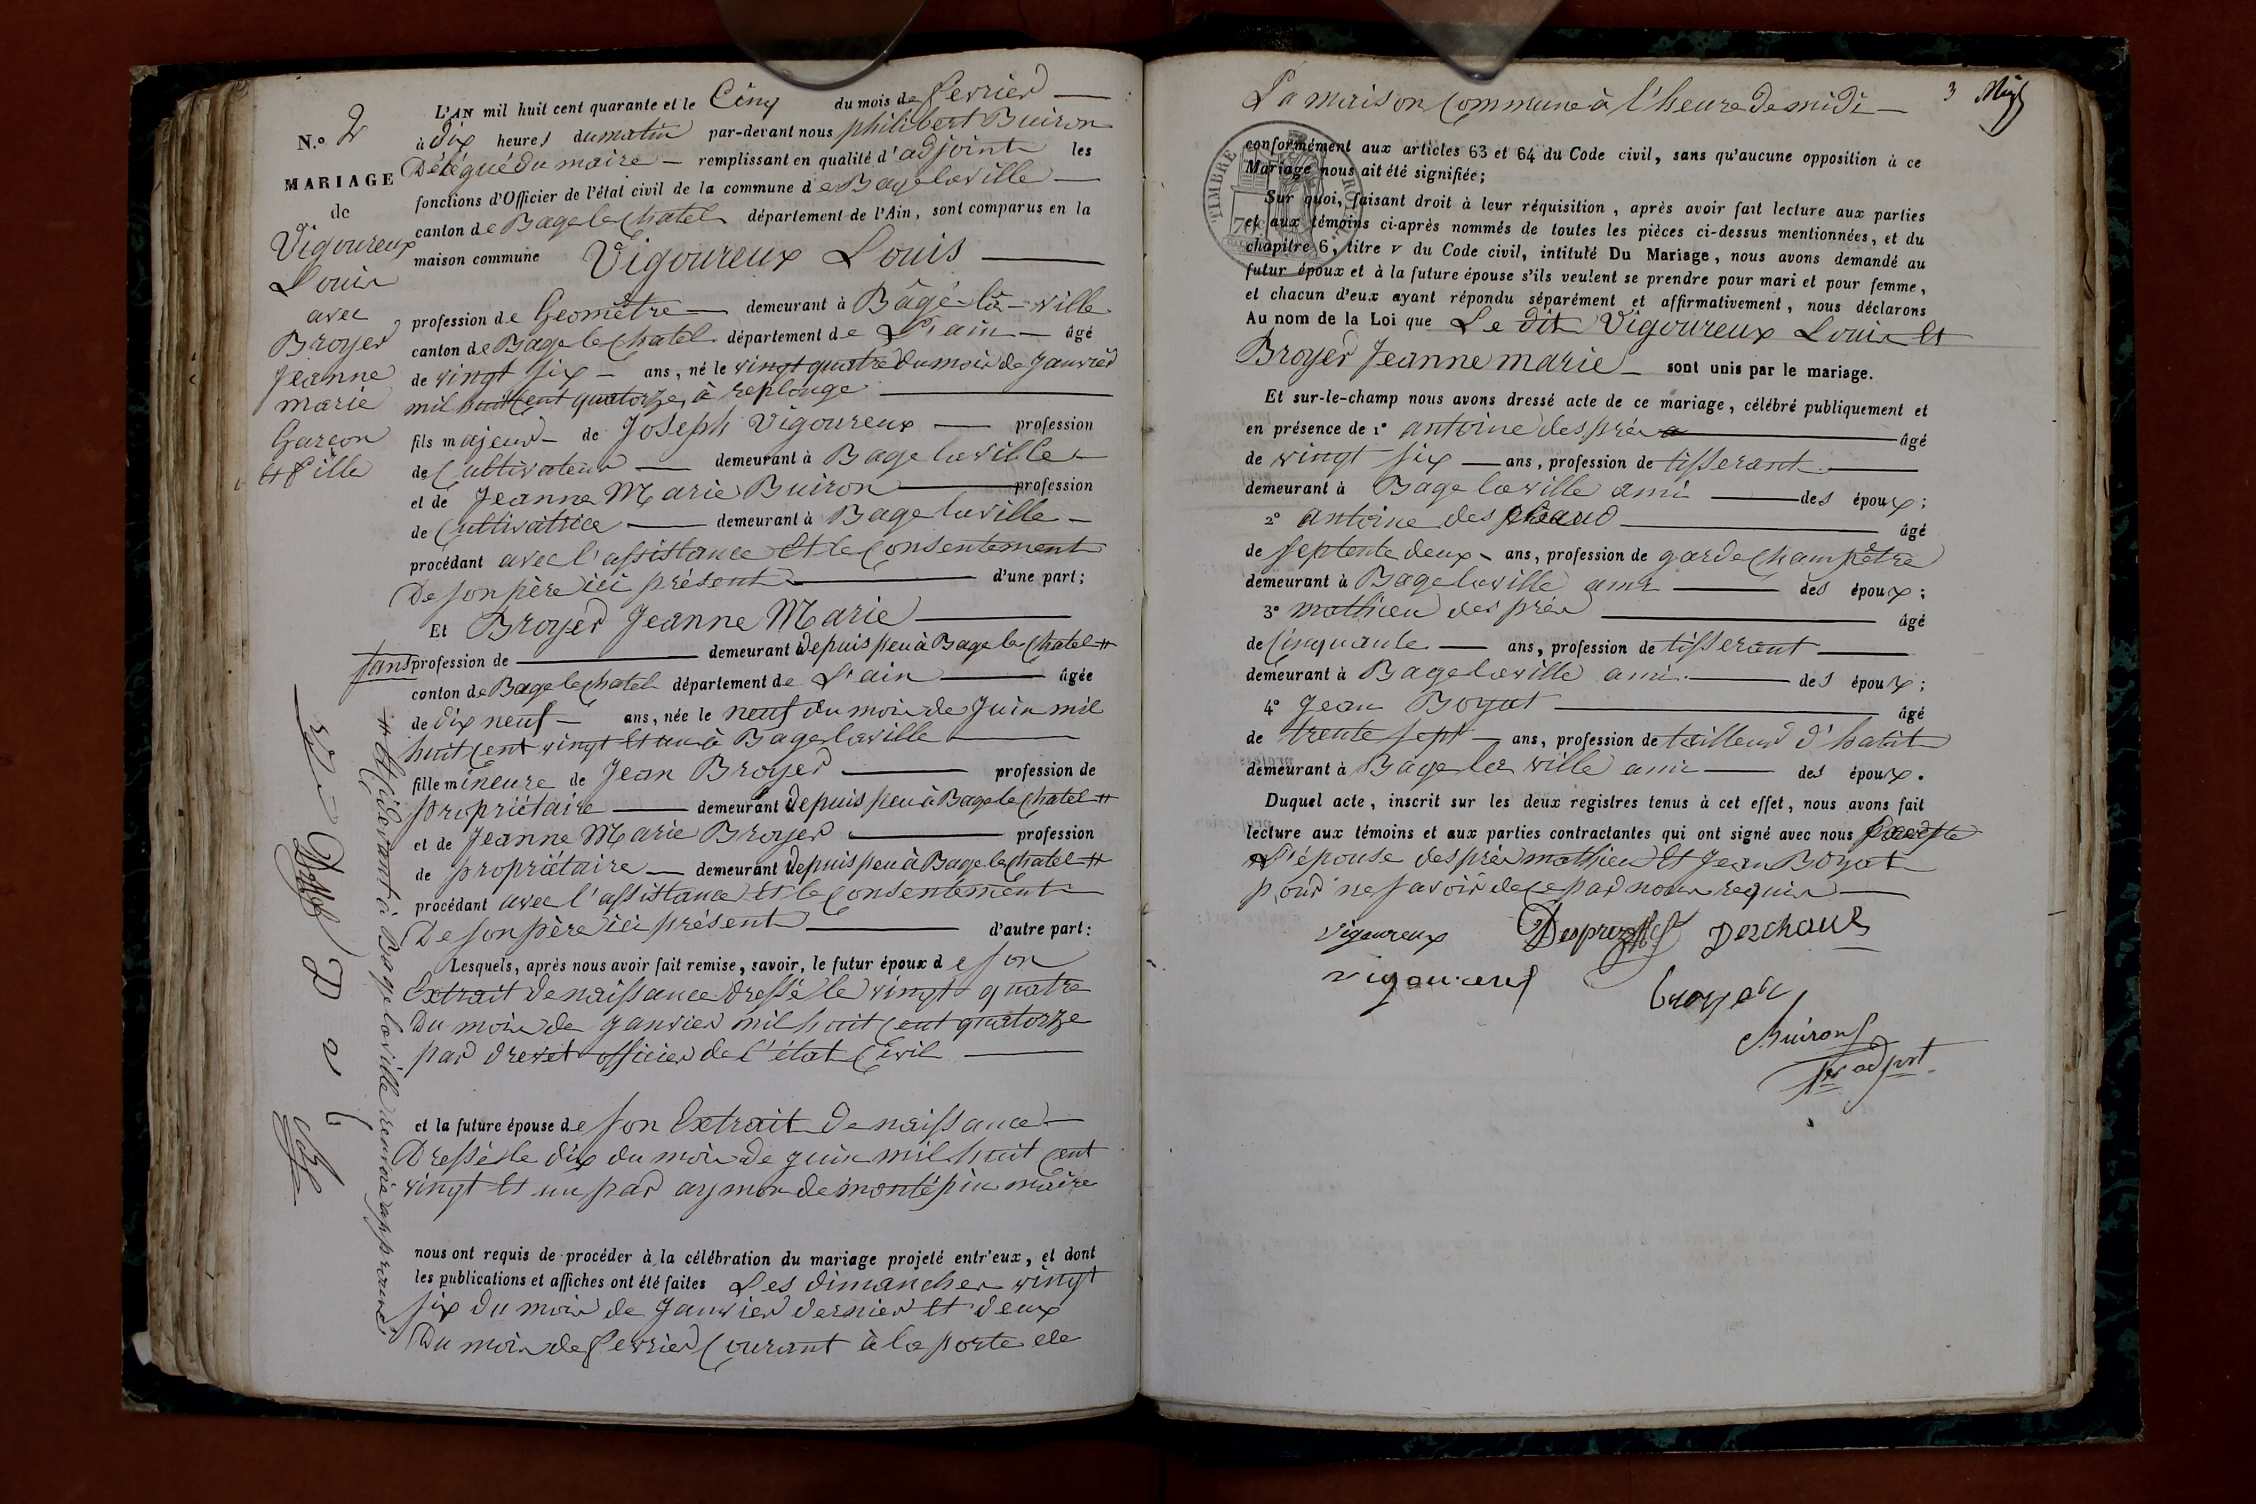 N.° 2
MARIAGE
de
Vigoureux
Louis
avec
Broyer
Jeanne
marie
Garçon
et fille
L'AN mil huit cent quarante et le Cinq du mois de fevrier
à dix heures du matin par-devant nous philibert Buiron
Délégué du maire remplissant en qualité d'adjoint les
fonctions d'Officier de l'état civil de la commune de Bage la ville
canton de Bage le Chatel département de l'Ain, sont comparus en la
maison commune Vigoureux Louis
profession de Geomètre demeurant à Bâgé-la-ville
canton de Bage le Chatel département de L'ain âgé
de vingt six ans, né le vingt quatre du mois de Janvier
mil huit cent quatorze, à replonge
fils majeur de Joseph Vigoureux profession
de Cultivateur demeurant à Bage la ville
et de Jeanne Marie Buiron profession
de Cultivatrice demeurant à Bage la ville
procédant avec l'assistance et le Consentement
De son père ici présent d'une part;
Et Broyer Jeanne Marie
sans profession de demeurant depuis peu à Bage le Chatel #
canton de Bage le chatel département de L'ain âgée
de dix neuf ans, née le neuf du mois de Juin mil
huit cent vingt et un à Bage la ville
fille mineure de Jean Broyer profession de
propriétaire demeurant depuis peu à Bage le Chatel #
et de Jeanne Marie Broyer profession
de propriétaire demeurant depuis peu à Bage le chatel #
procédant avec l'assistance et le Consentement
De son père ici présent d'autre part:
Lesquels, après nous avoir fait remise, savoir, le futur époux de son
Extrait de naissance dressé le vingt quatre
Du mois de Janvier mil huit cent quatorze
par drevet officier de l'état Civil
et la future épouse de son Extrait de naissance
Dressé le dix du mois de juin mil huit cent
vingt et un par aymon de montépin maire
nous ont requis de procéder à la célébration du mariage projeté entr'eux, et dont
les publications et affiches ont été faites Les dimanches vingt
six du mois de Janvier dernier et deux
Du mois de fevrier Courant à la porte de
# et ci devant à Bage la ville renvoi approuvé
V D B
3
La maison Commune à l'heure de midi
conformément aux articles 63 et 64 du Code civil, sans qu'aucune opposition à ce
Mariage nous ait été signifiée;
Sur quoi, faisant droit à leur réquisition, après avoir fait lecture aux parties
et aux témoins ci-après nommés de toutes les pièces ci-dessus mentionnées, et du
chapitre 6, titre V du Code civil, intitulé Du Mariage, nous avons demandé au
futur époux et à la future épouse s'ils veulent se prendre pour mari et pour femme,
et chacun d'eux ayant répondu séparément et affirmativement, nous déclarons
Au nom de la Loi que Le dit Vigoureux Louis et
Broyer Jeanne marie sont unis par le mariage.
Et sur-le-champ nous avons dressé acte de ce mariage, célébré publiquement et
en présence de 1° antoine desprès âgé
de vingt six ans, profession de tisserant
demeurant à Bage la ville ami des époux;
2° antoine deschaud âgé
de septente deux ans, profession de garde Champêtre
demeurant à Bage la ville ami des époux;
3° mathieu desprès âgé
de Cinquante ans, profession de tisserant
demeurant à Bage la ville ami des époux;
4° Jean Boyat âgé
de trente sept ans, profession de tailleur d'habit
demeurant à Bage la ville ami des époux.
Duquel acte, inscrit sur les deux registres tenus à cet effet, nous avons fait
lecture aux témoins et aux parties contractantes qui ont signé avec nous Excepté
L'épouse desprès mathieu et Jean Boyat
pour ne savoir de ce par nous requis
TIMBRE ROYAL
Vigoureux Desprez Deschaud
Vigoureux
broyer
Buiron
adjoint